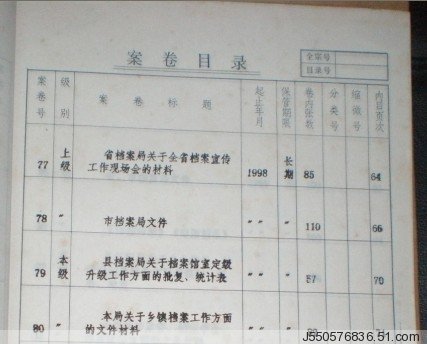 案卷目录
全宗号
目录号
案卷号 级别 案卷标题 起止年月 保管期限 卷内张数 分类号 缩微号 内目页次
77 上级 省档案局关于全省档案宣传 1998 长期 85 64
工作现场会的材料
78 〃 市档案局文件 〃 〃 〃 110 66
79 本级 县档案局关于档案馆室定级 〃 〃 〃 57 70
升级工作方面的批复、统计表
80 〃 本局关于乡镇档案工作方面 〃 〃 〃 71
的文件材料
J550576836.51.com